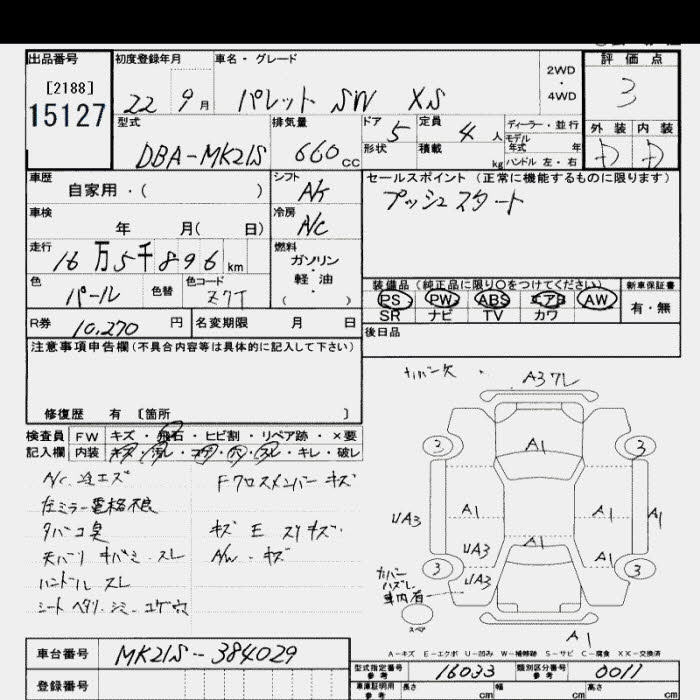 出品番号 初度登録年月 車名・グレード 評価点
[2188] 2WD
15127 22 9月 パレット SW XS ・ 3
4WD
型式 排気量 ドア 5 定員 4人 ディーラー・並行 外装 内装
DBA-MK21S 660cc 形状 積載 kg モデル年式 年 D D
ハンドル 左・右
車歴 シフト セールスポイント (正常に機能するものに限ります)
自家用・( ) プッシュスタート
車検 冷房
年 月( 日) A/C
走行 燃料
16万5千896km ガソリン
・
色 色替 色コード 軽油 装備品 (純正品に限り○をつけてください) 新車保証書
パール Z7T ( ) PS PW ABS エアB AW 有・無
SR ナビ TV カワ
R券 10,270円 名変期限 月 日 後日品
注意事項申告欄 (不具合内容等は具体的に記入して下さい)
修復歴 有 [箇所 ]
検査員 FW キズ・飛石・ヒビ割・リペア跡・×要
記入欄 内装 キズ・汚レ・コゲ・穴・スレ・キレ・破レ
A/C 冷エズ Fクロスメンバー キズ
左ミラー電格不良
タバコ臭 キズ E スリキズ・
天バリ キバミ・スレ A/W・キズ
ハンドル スレ
シート ヘタリ・シミ・コゲ穴
ナンバー欠・ A3 ワレ
A1
3 3
UA3 A1 A1 A1
UA3 A1
3 UA3 3
カバーハズレ 車内有
スペア
A1
A-キズ E-エクボ U-凹み W-補修跡 S-サビ C-腐食 XX-交換済
車台番号 MK21S-384029
型式指定番号 参考 16033 類別区分番号 参考 0011
登録番号
車庫証明用 参考 長さ cm 幅 cm 高さ cm